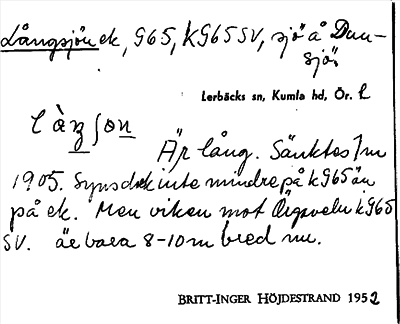 Långsjön ek, G65, kG65 SV, sjö å Dun-
sjö.
Lerbäcks sn, Kumla hd, Ör. l
Är lång. Sänktes 1 m
1905. Syns dock inte mindre på kG65 än
på ek. Men viken mot kG65
SV. är bara 8-10 m bred nu.
BRITT-INGER HÖJDESTRAND 1952